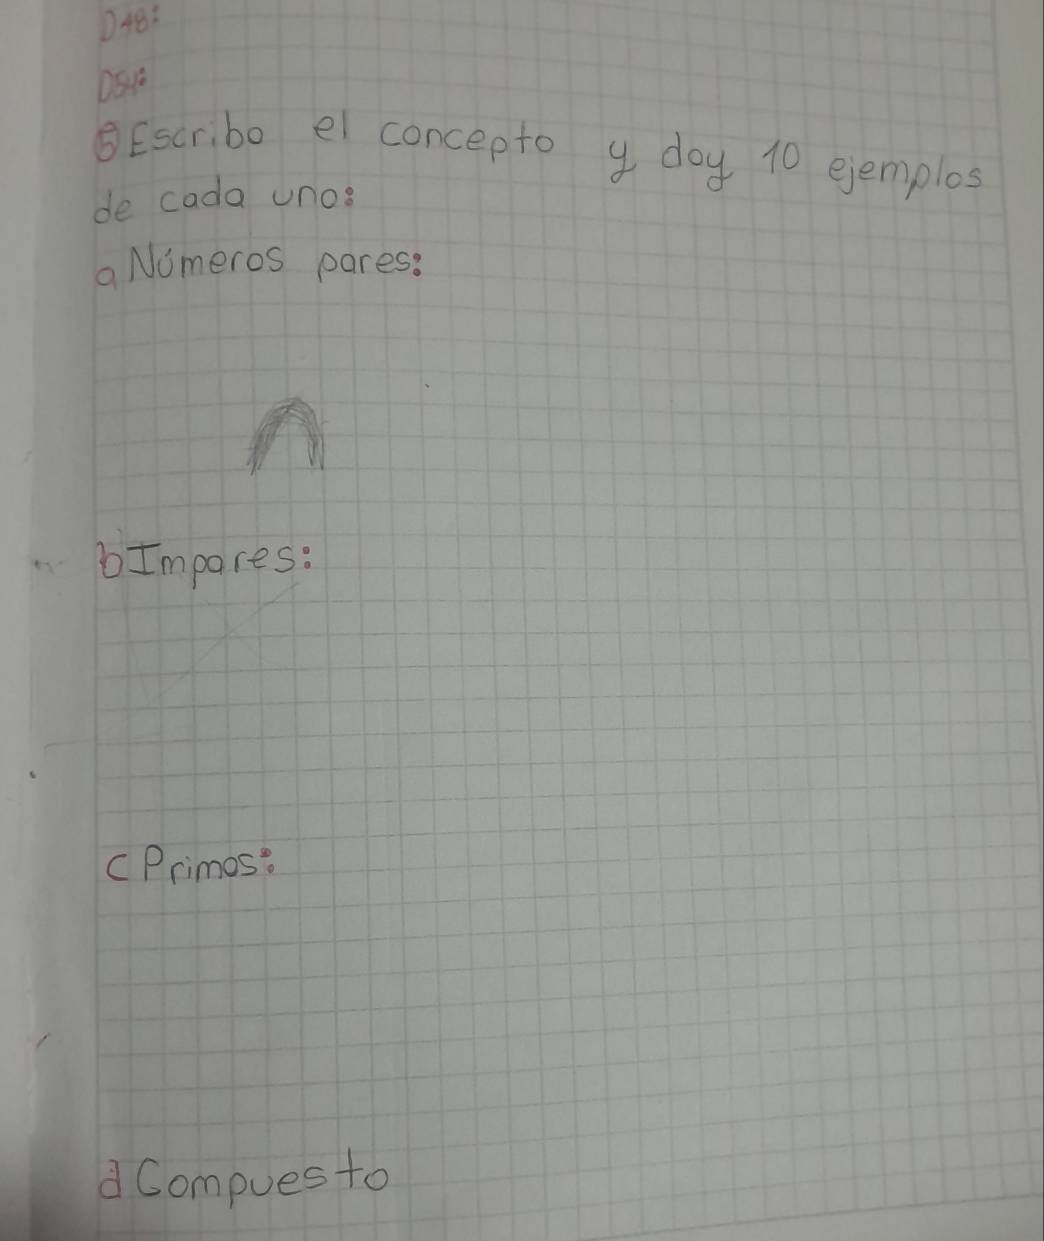 D48:
D54:
⑤ Escribo el concepto y doy 10 ejemplos
de cada uno:
a Números pares:
b Impares:
c Primos:
d Compuesto